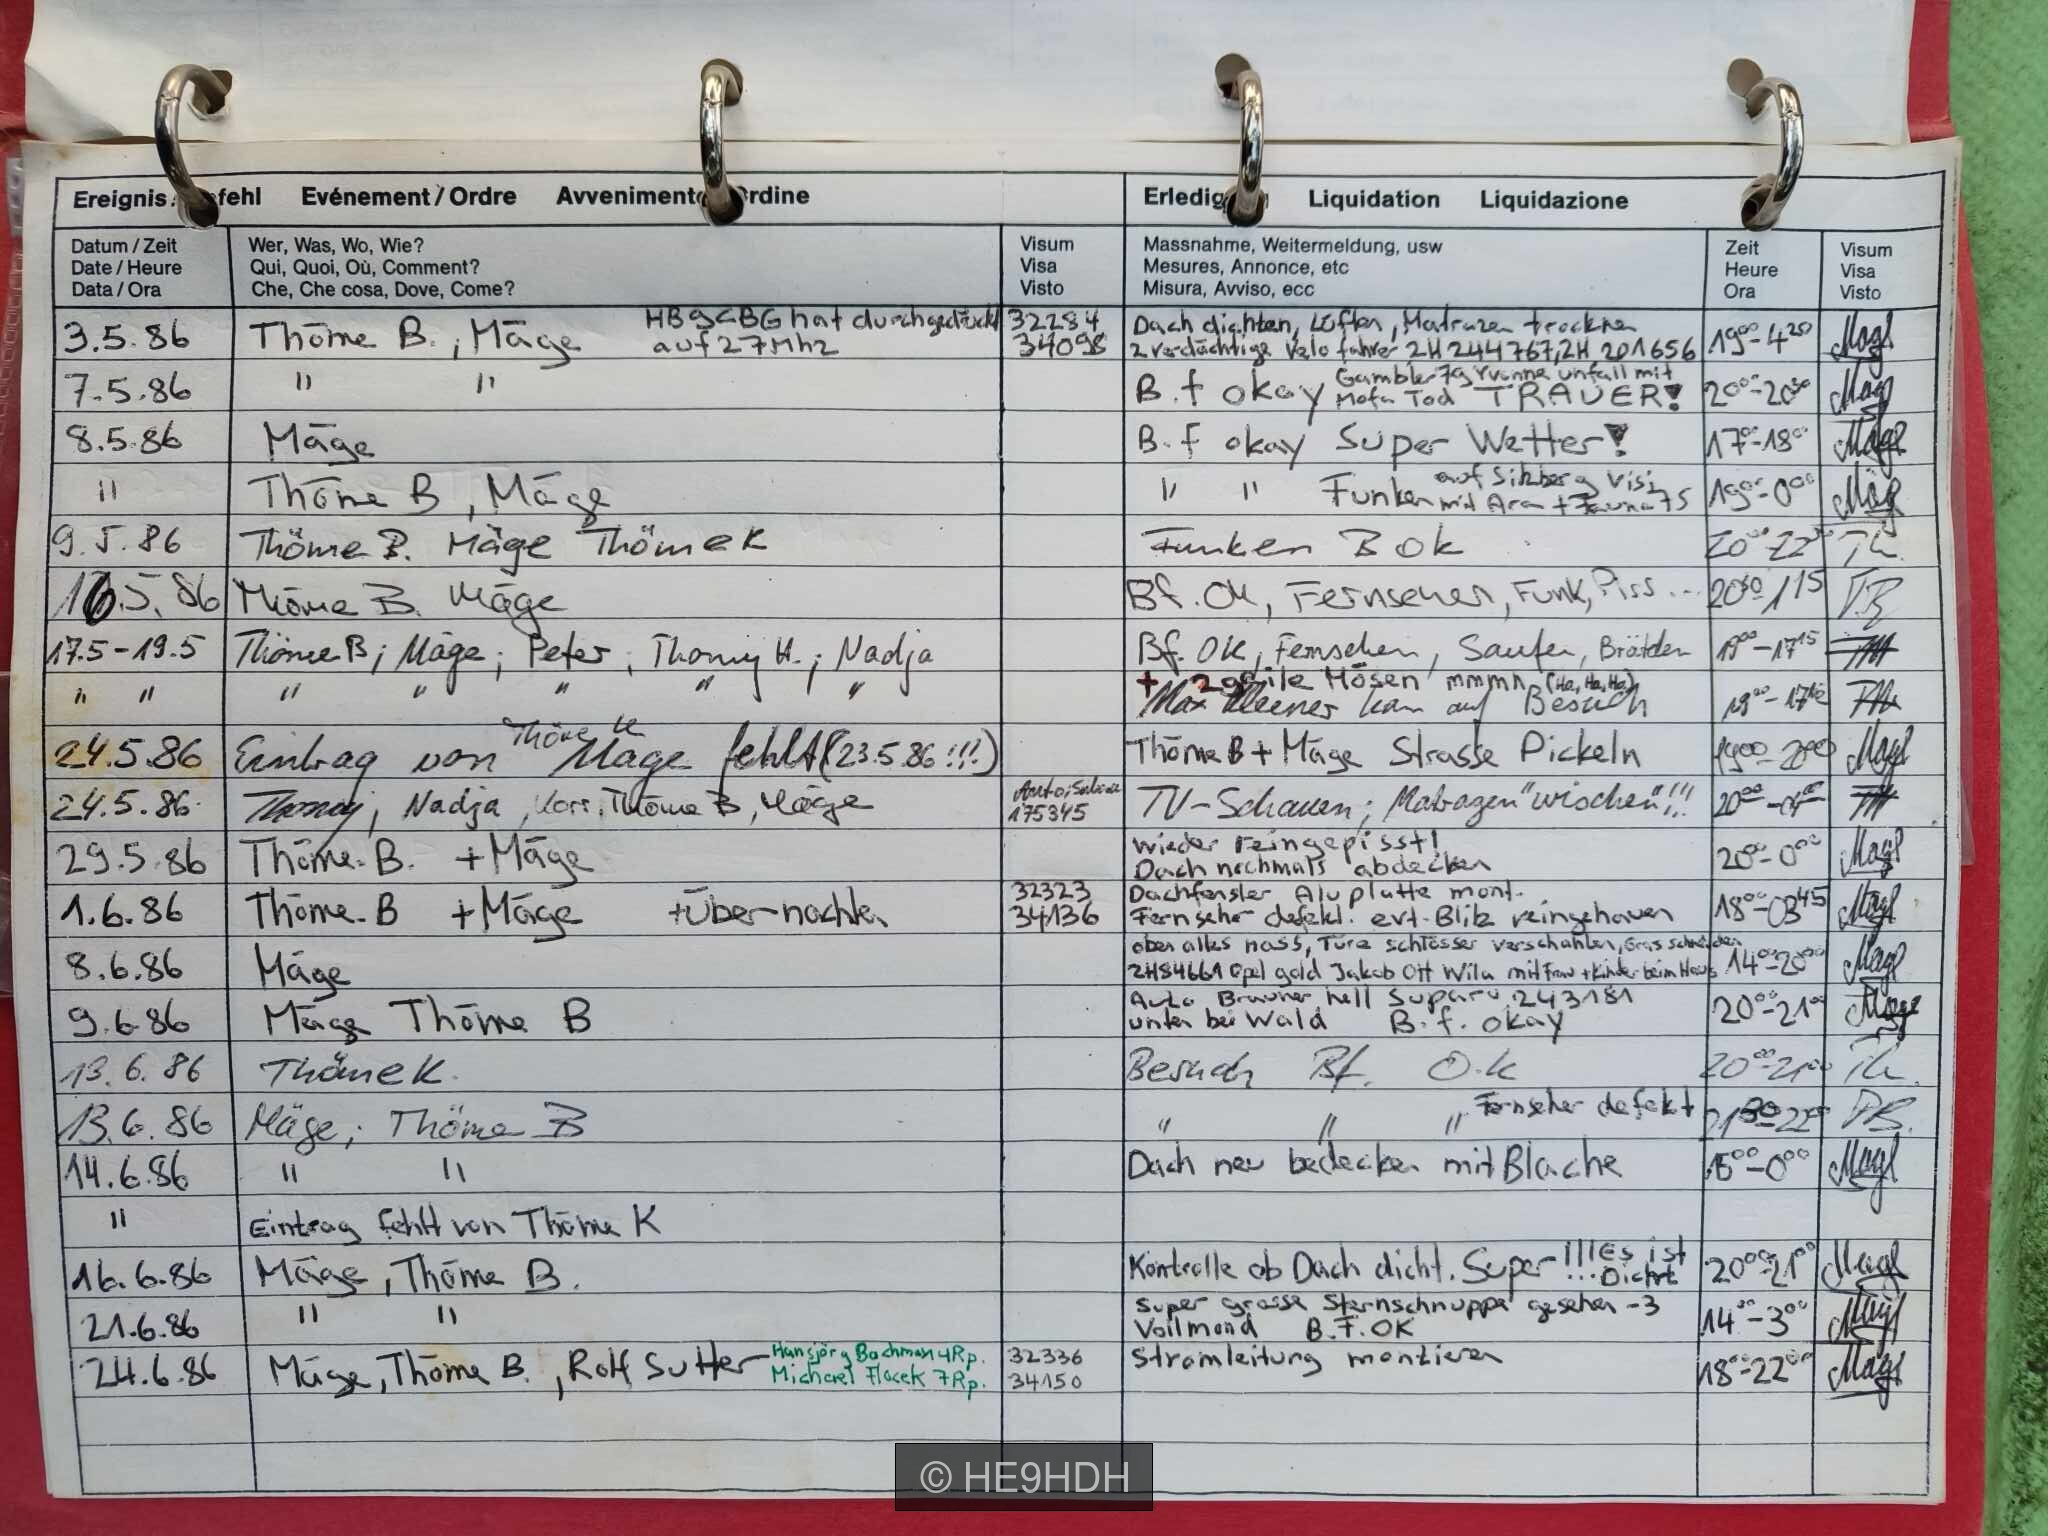 Ereignis fehl Evénement / Ordre Avvenimento rdine Erledig Liquidation Liquidazione
Datum / Zeit Wer, Was, Wo, Wie? Visum Massnahme, Weitermeldung, usw Zeit Visum
Date / Heure Qui, Quoi, Où, Comment? Visa Mesures, Annonce, etc Heure Visa
Data / Ora Che, Che cosa, Dove, Come? Visto Misura, Avviso, ecc Ora Visto
3.5.86 Thöme B., Mäge hat durchgedrückt auf 27Mhz 32284 34098 Dach dichten, Lüften, Matrazen trocknen 2 verdächtige Velofahrer ZH 244767, ZH 201656 19⁰⁰-4²⁰ Mägi
7.5.86 " " B.f okay Gambler 79 Yvonne unfall mit Mofa Tod TRAUER! 20⁰⁰-20³⁰
8.5.86 Mäge B.f okay Super Wetter! 17⁰⁰-18⁰⁰
" Thöme B, Mäge " " Funken auf Sitzberg mit 19⁰⁰-0⁰⁰
9.5.86 Thöme B. Mäge Thöme K Funken B ok Th.
16.5.86 Thöme B. Mäge Bf. OK, Fernsehen, Funk, Piss... 1¹⁵ TB
17.5-19.5 Thöme B; Mäge; Peter; Thomy H.; Nadja Bf. OK, Fernsehen, Saufen, 19⁰⁰-17¹⁵
" " " " " " " + 2 geile Mösen mmmm (Ha, Ha, Ha) Max kam auf Besuch
24.5.86 Eintrag von Thöme K Mäge fehlt (23.5.86!!!) Thöme B + Mäge Strasse Pickeln
24.5.86 Thomy, Nadja, Thöme B, Mäge 175345 TV-Schauen; Matrazen "wischen"!!!
29.5.86 Thöme B. + Mäge wieder reingepisst! Dach nochmals abdecken 20⁰⁰-0⁰⁰
1.6.86 Thöme B + Mäge + Übernachten 32323 34136 Dachfenster Aluplatte mont. Fernseher defekt. evt. Blitz reingehauen 18⁰⁰-03⁴⁵
8.6.86 Mäge oben alles nass, Türe schlösser verschahlen, Gras schneiden ZH84661 Opel gold Jakob Ott Wila mit Frau + Kinder beim Haus 14⁰⁰-20⁰⁰
9.6.86 Mäge Thöme B Auto Brauner hell Suparu 243181 unten bei Wald B.f. okay 20⁰⁰-21⁰⁰ Mäge
13.6.86 Thöme K. Besuch Bf. O.k 20⁰⁰-21⁰⁰ Th.
13.6.86 Mäge; Thöme B " " " Fernseher defekt TB.
14.6.86 " " Dach neu bedecken mit Blache 15⁰⁰-0⁰⁰
" Eintrag fehlt von Thöme K
16.6.86 Mäge, Thöme B. Kontrolle ob Dach dicht. Super!!! Es ist ...Dicht 20⁰⁰-21⁰⁰
21.6.86 " " super grosse Sternschnuppe gesehen -3 Vollmond B.F.OK 14³⁰-3⁰⁰
24.6.86 Mäge, Thöme B., Rolf Sutter Hansjörg Bachmann 4Rp. Michael 7Rp. 32336 34150 Stromleitung montieren 18⁰⁰-22⁰⁰
© HE9HDH